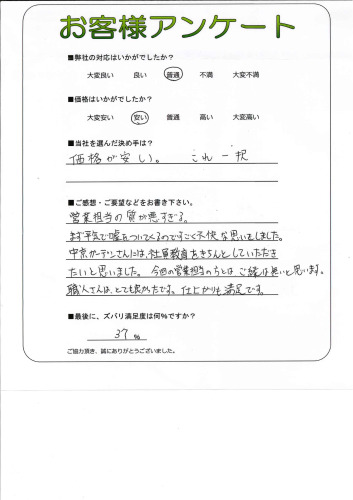 お客様アンケート
■弊社の対応はいかがでしたか？
大変良い 良い 普通 不満 大変不満
■価格はいかがでしたか？
大変安い 安い 普通 高い 大変高い
■当社を選んだ決め手は？
価格が安い。 これ一択
■ご感想・ご要望などをお書き下さい。
営業担当の質が悪すぎる。
まず平気で嘘をついてくるのですごく不快な思いをしました。
中京ガーデンさんには、社員教育をきちんとしていただき
たいと思いました。 今回の営業担当のちとは ご縁は無いと思います。
職人さんは、とても良い方です。 仕上がりも満足です。
■最後に、ズバリ満足度は何%ですか？
37 %
ご協力頂き、誠にありがとうございました。